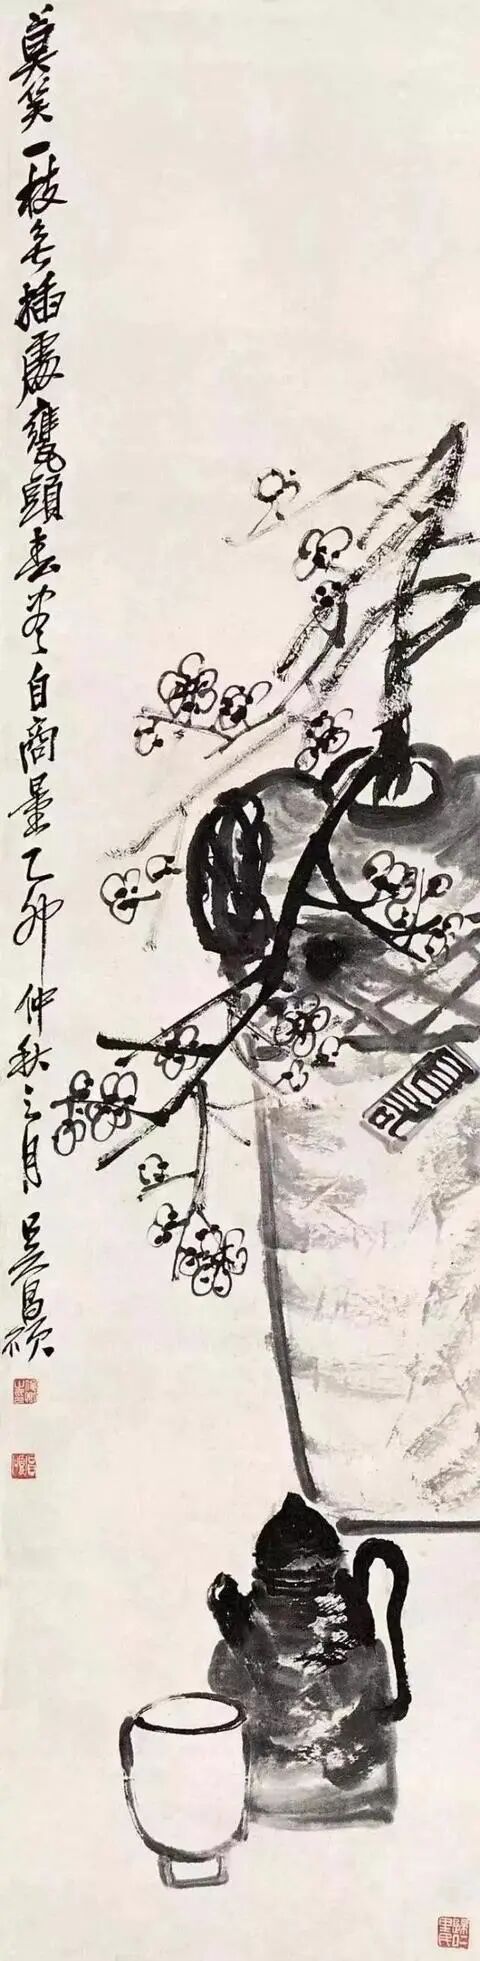 莫笑一枝無插處甕頭春盡自商量乙卯仲秋之月吳昌碩
歸仁里民